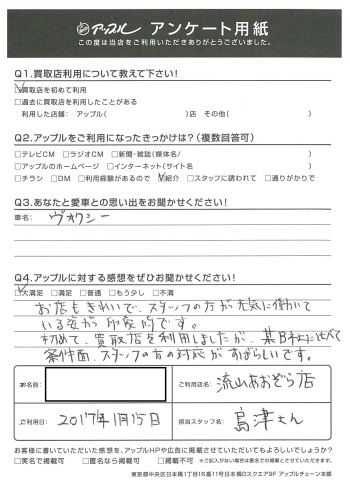 アップル アンケート用紙
この度は当店をご利用いただきありがとうございました。
Q1.買取店利用について教えて下さい!
□買取店を初めて利用
□過去に買取店を利用したことがある
利用した店舗: アップル( )店 その他( )
Q2.アップルをご利用になったきっかけは?(複数回答可)
□テレビCM □ラジオCM □新聞・雑誌(媒体名/ )
□アップルのホームページ □インターネット(サイト名 )
□チラシ □DM □利用経験があるので □紹介 □スタッフに誘われて □通りがかりで
Q3.あなたと愛車との思い出をお聞かせください!
車名: ヴォクシー
Q4.アップルに対する感想をぜひお聞かせください!
□大満足 □満足 □普通 □もう少し □不満
お店もきれいで、スタッフの方が元気に働いて
いる姿が印象的です。
初めて、買取店を利用しましたが、某B社に比べて
条件面、スタッフの方の対応がすばらしいです。
お名前:
ご利用店名: 流山おおぞら店
ご利用日: 2017年1月15日
担当スタッフ名: 島津さん
お客様に書いていただいた感想を、アップルHPや広告に掲載させていただいてもよろしいでしょうか?
□実名で掲載可 □匿名なら掲載可 □掲載不可 ※ご記入がない場合は匿名での掲載とさせていただきます。
東京都中央区日本橋1丁目16番11号日本橋Dスクエア9F アップルチェーン本部